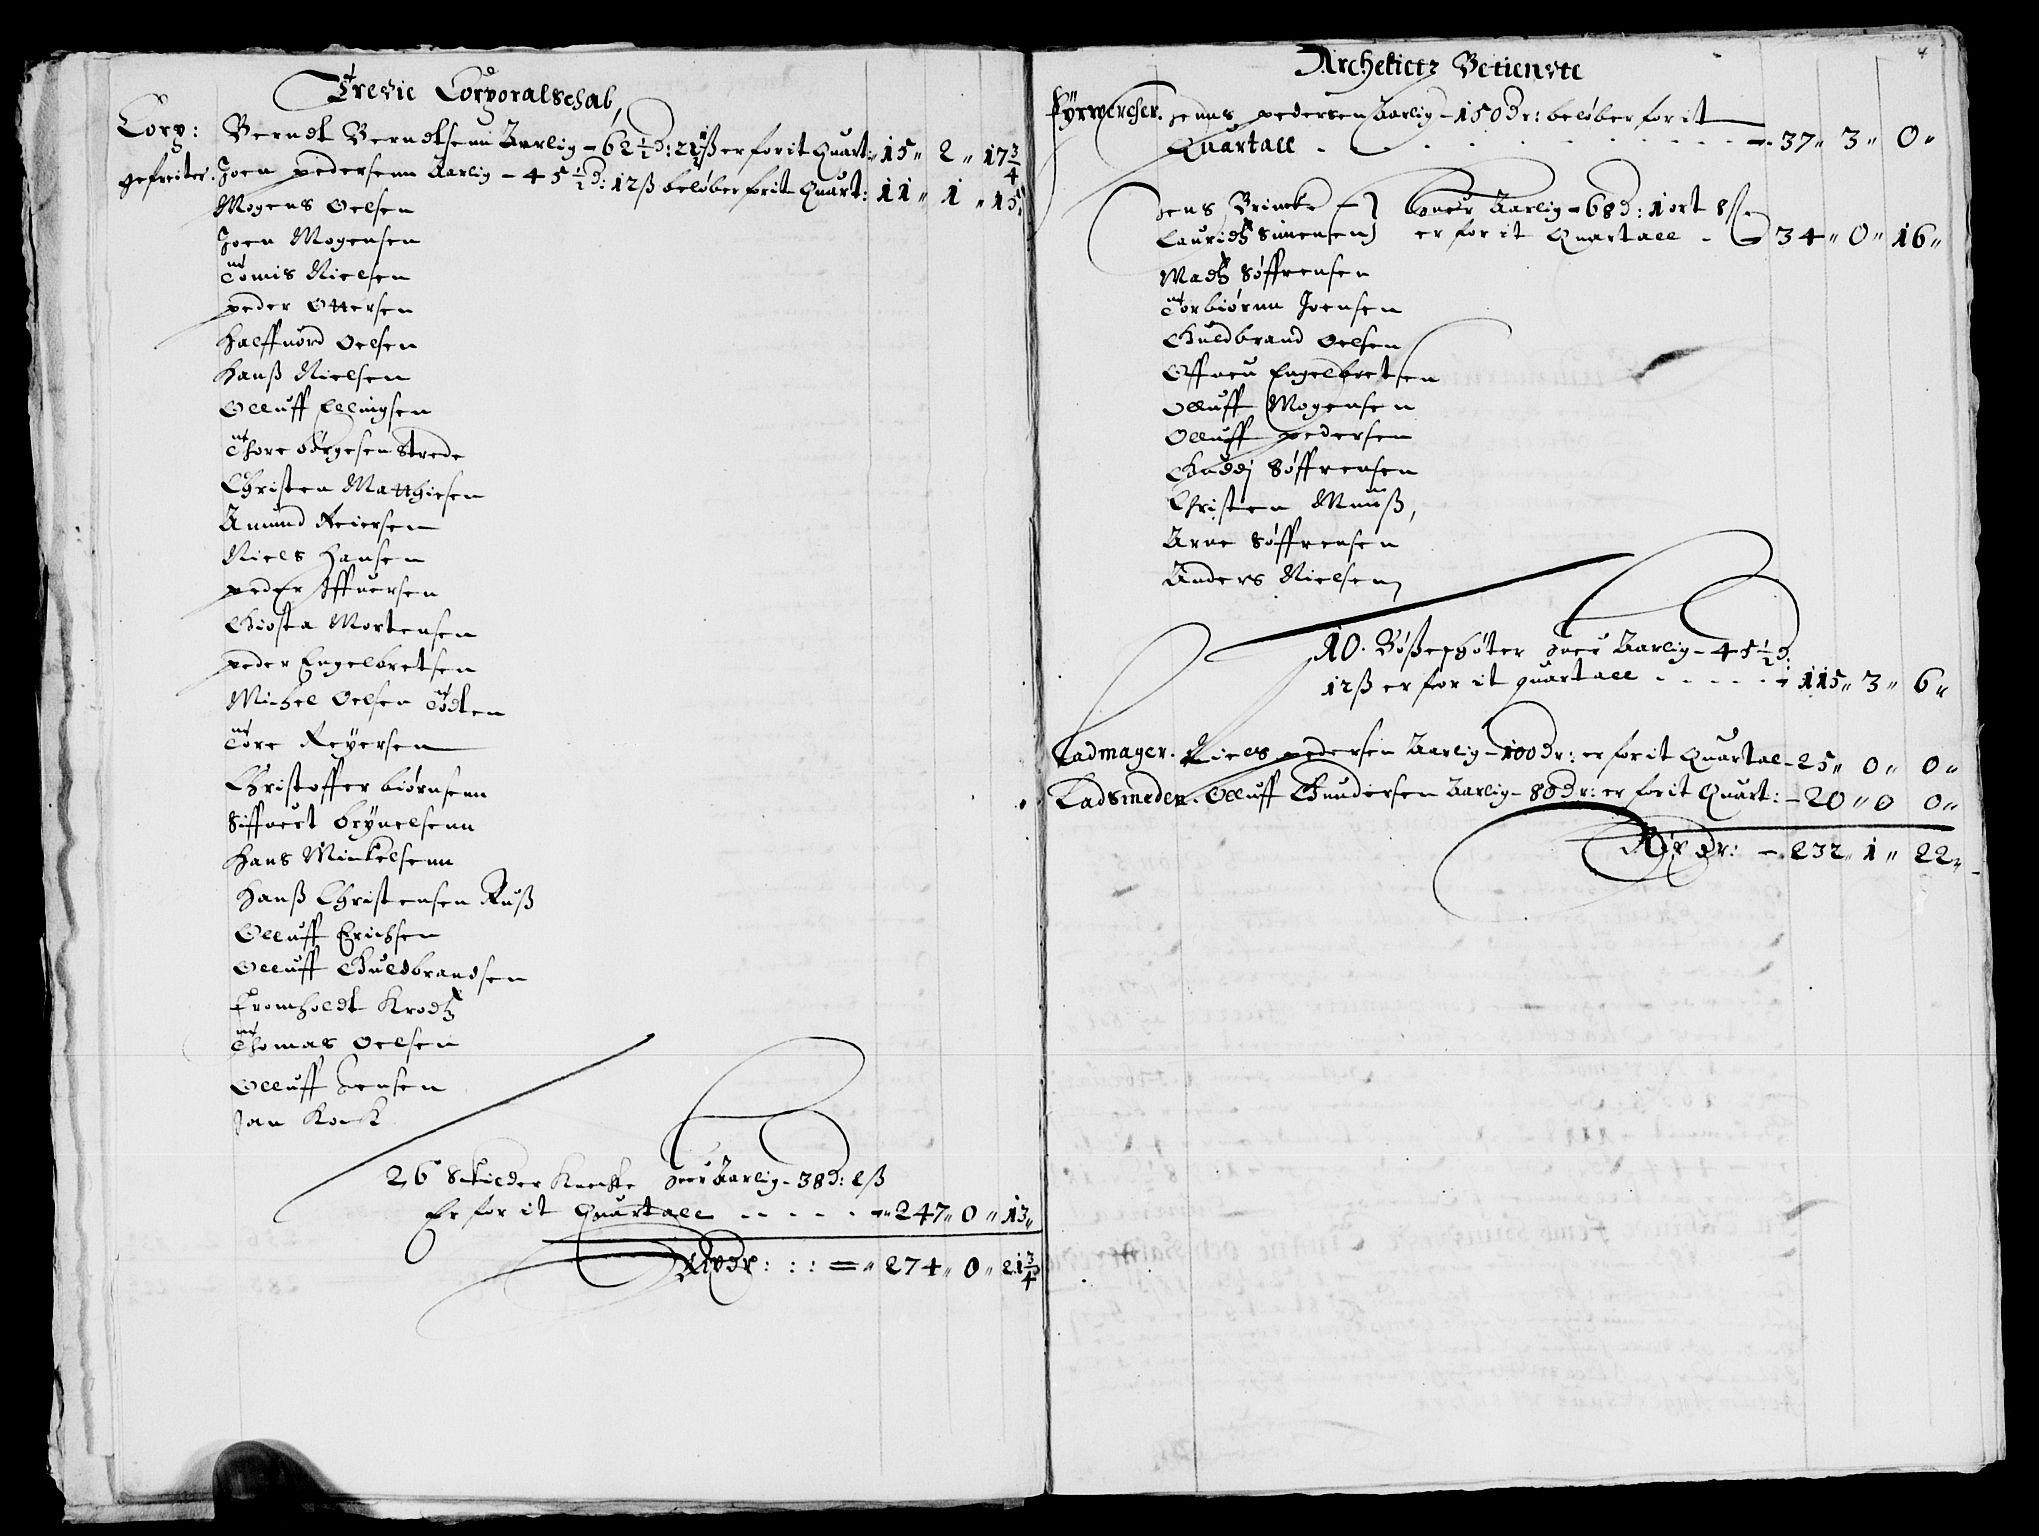 Tredie Corporalschab,
Corp: Berndt Berndtsenn Aarlig - 62½ d: 21½ ß er for it Quart: 15" 2" 17¾
gefreiter. Joen pedersenn Aarlig - 45½ d: 12 ß beløber for it Quart: 11" 1" 15"
Mogens Oelsen
Joen Mogensen
Tomis Nielsen
peder Ottersen
Halffuord Oelsen
Hanß Nielsen
Olluff Ellingsen
Thore Børgesen Strede
Christen Matthiesen
Amund Reiersen
Niels Hansen
peder Iffuersen
Giosta Mortensen
peder Engelbretsen
Michel Oelsen Todten
Tore Reyersen
Christoffer biørnsenn
Siffuert brynelsenn
Hans Minkelsenn
Hanß Christensen Ruß
Olluff Erichsen
Olluff Guldbrandsen
Fromholdt Krodtz
Thomas Oelsen
Olluff Jensen
Jan Kock
26 Schilder Knechte huer Aarlig - 38 d: 2 ß
Er for it Quartall - - - - 247" 0" 13"
Rixdr: : : = " 274" 0" 21¾
4
Archelietz Betiendte
Fyrwercher. Jenns pedersen Aarlig - 150 dr: beløber for it
Quartall - - - - 37" 3" 0"
Jens Brincke - } huer Aarlig - 68 d: 1 ort 8 ß
Lauridtz Simensen } er for it Quartall - - 34" 0" 16"
Madtz Søffrensen
Torbiørnn Joensen
Guldbrand Oelsen
Offueu Engelbretsen
Olluff Mogensen
Olluff pedersen
Søffrensen
Christen Muuß,
Arne Søffrensen
Anders Nielsen
10. Bøßeschøter huer Aarlig - 45½ d:
12 ß er for it quartall - - - - 115" 3" 6"
Ladmager. Niels pedersen Aarlig - 100 dr: er for it Quartal - 25" 0" 0"
Ladsmeden. Olluff Gundersen Aarlig - 80 dr: er for it Quart: - 20" 0 0"
Rixdr: - 232" 1" 22"